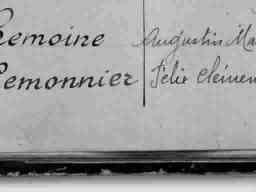 Lemoine Augustin Ma
Lemonnier Félix Clémen